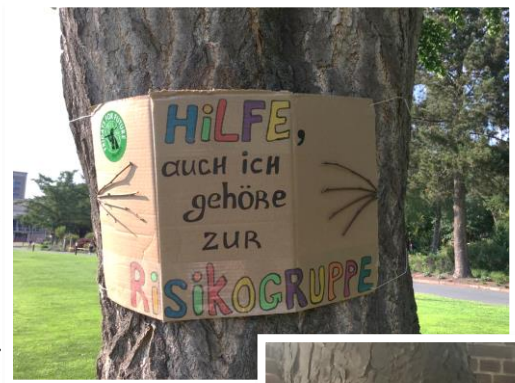 HiLFE,
auch ich
gehöre
zur
RiSiKOGRUPPE